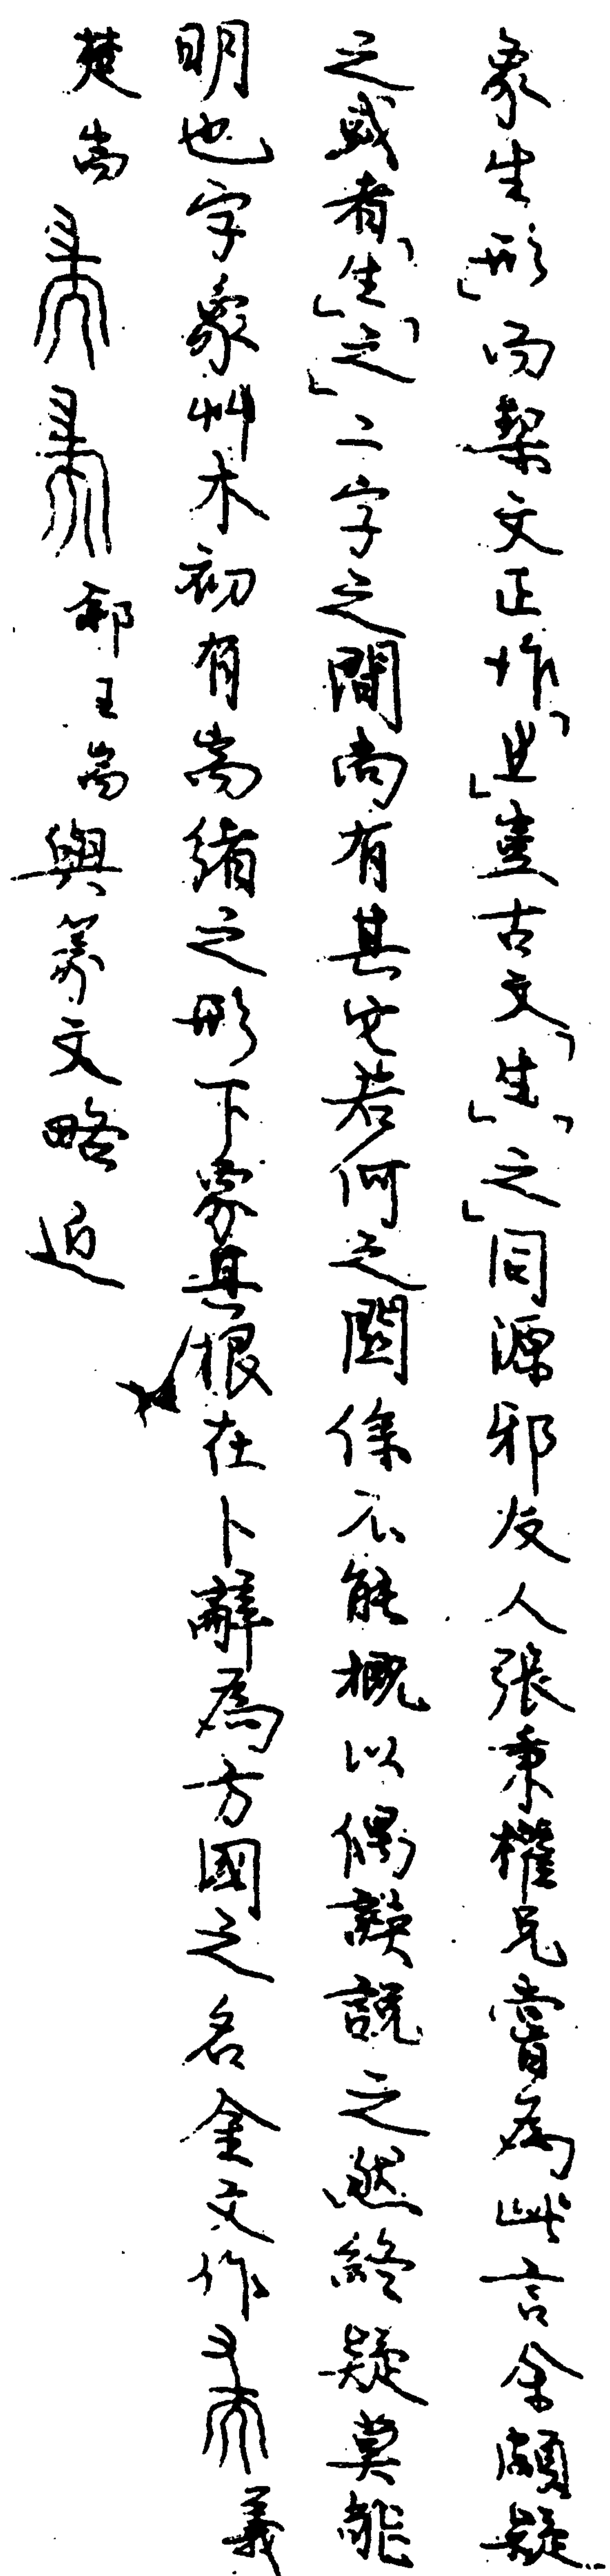 象生「形」而栔文正作「㞢」豈古文「生」「之」同源邪友人張秉權兄嘗為此言余頗疑
之或者「生」「之」二字之間尚有其它若何之關係不能概以偶誤說之然終疑莫能
明也字象艸木初有耑緒之形下象其根在卜辭為方國之名金文作 義
楚耑 䣄王耑與篆文略近